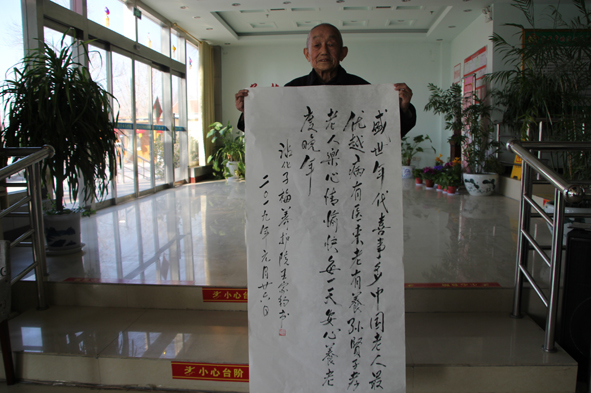 盛世年代喜事多中国老人最
优越病有医来老有养孙贤子孝
老人乐心情愉快每一天安心养老
度晚年
沾化子梅养
二〇一九年元月廿六日
小心台阶
小心台阶